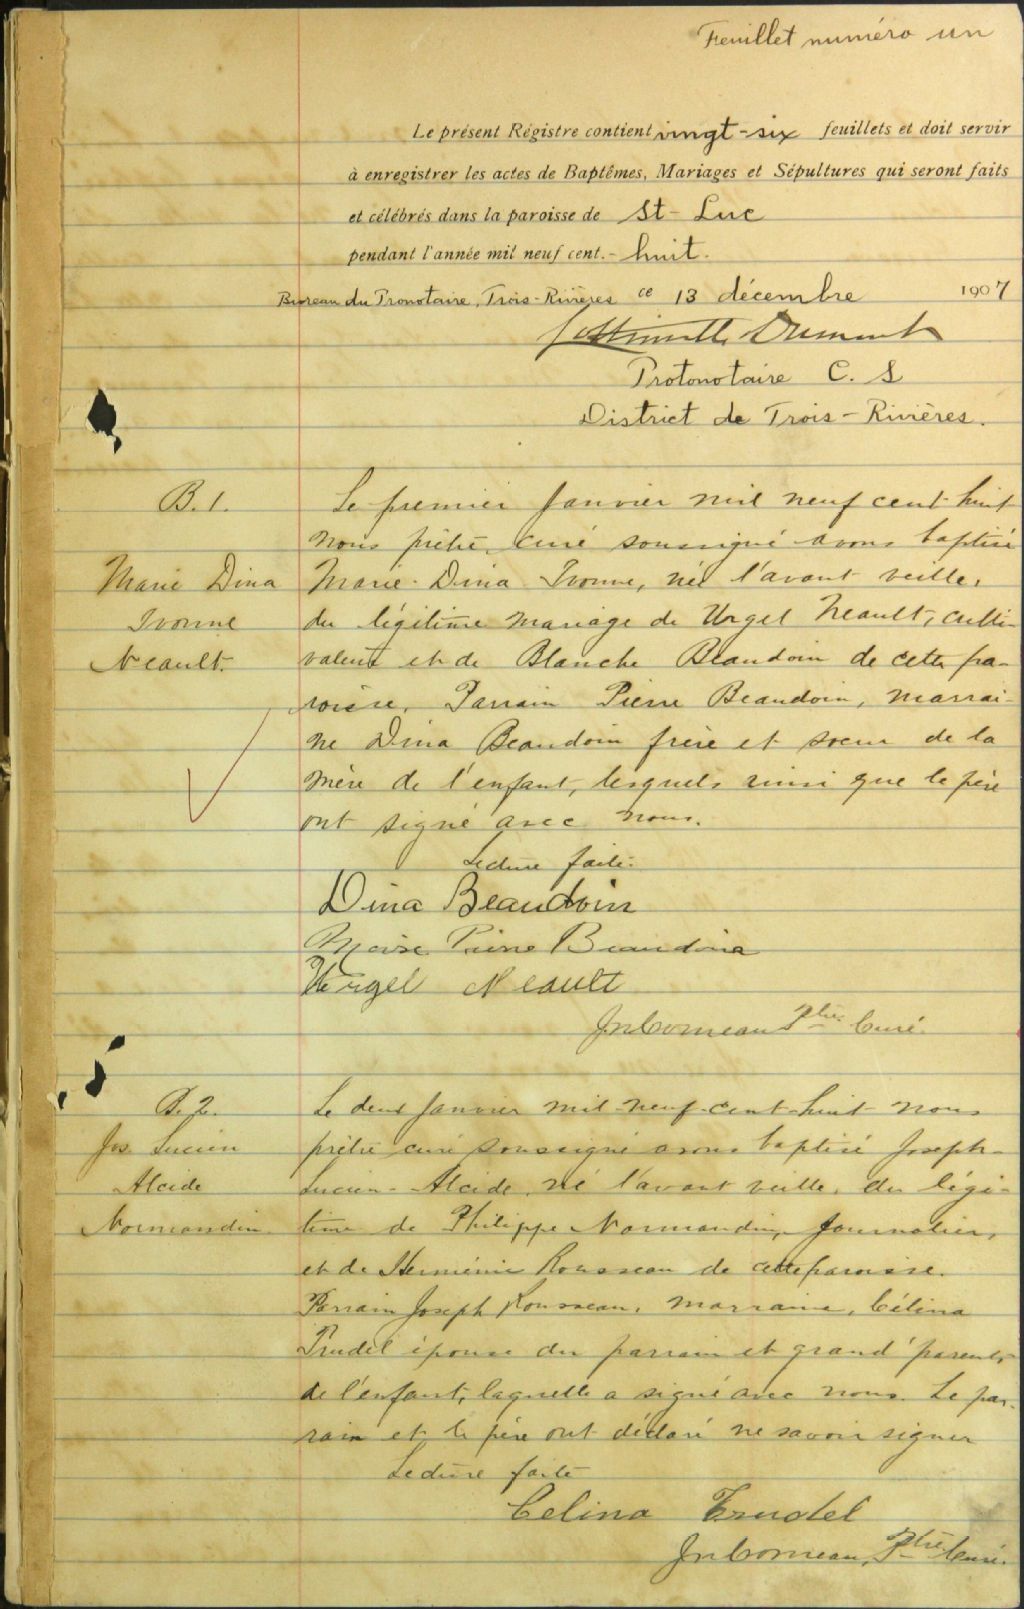 Feuillet numéro un
Le présent Régistre contient vingt-six feuillets et doit servir
à enregistrer les actes de Baptêmes, Mariages et Sépultures qui seront faits
et célébrés dans la paroisse de St-Luc
pendant l'année mil neuf cent.- huit.
Bureau du Pronotaire, Trois-Rivières ce 13 décembre 1907
Protonotaire C. S
District de Trois-Rivières.
B. 1. Le premier Janvier mil neuf cent huit
nous prêtre curé soussigné avons baptisé
Marie Dina Marie-Dina-Ivonne, née l'avant veille,
Ivonne du légitime mariage de Urgel Neault, culti-
Neault. valeur et de Blanche Beaudoin de cette pa-
roisse, Parrain Pierre Beaudoin, marrai-
ne Dina Beaudoin frère et soeur de la
mère de l'enfant, lesquels ainsi que le père
ont signé avec nous.
Lecture faite.
Dina Beaudoin
Moise Pierre Beaudoin
Urgel Neault
Jn Comeau Ptre Curé.
B. 2. Le deux Janvier mil-neuf-cent-huit nous
Jos. Lucien prêtre curé soussigné avons baptisé Joseph-
Alcide Lucien-Alcide, né l'avant veille, du légi-
Normandin time de Philippe Normandin, Journalier,
et de Herménie Rousseau de cette paroisse.
Parrain Joseph Rousseau, marraine, Célina
Trudel épouse du parrain et grand'parents
de l'enfant, laquelle a signé avec nous. Le par-
rain et le père ont déclaré ne savoir signer
Lecture faite
Celina Trudel
Jn Comeau, Ptre Curé.